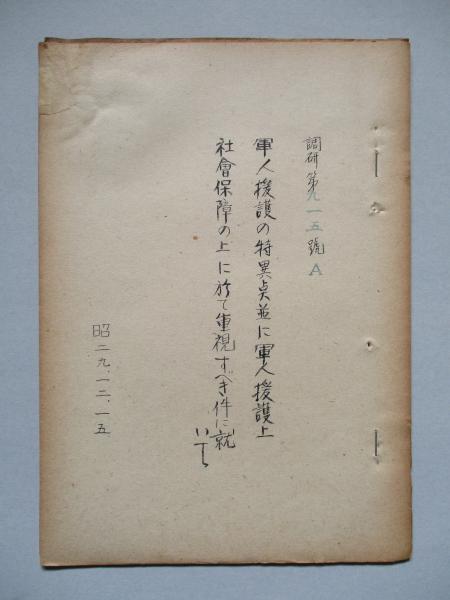 調研第九一五號A
軍人援護の特異点並に軍人援護上
社會保障の上に於て重視すべき件に就
いて
昭二九、一二、一五